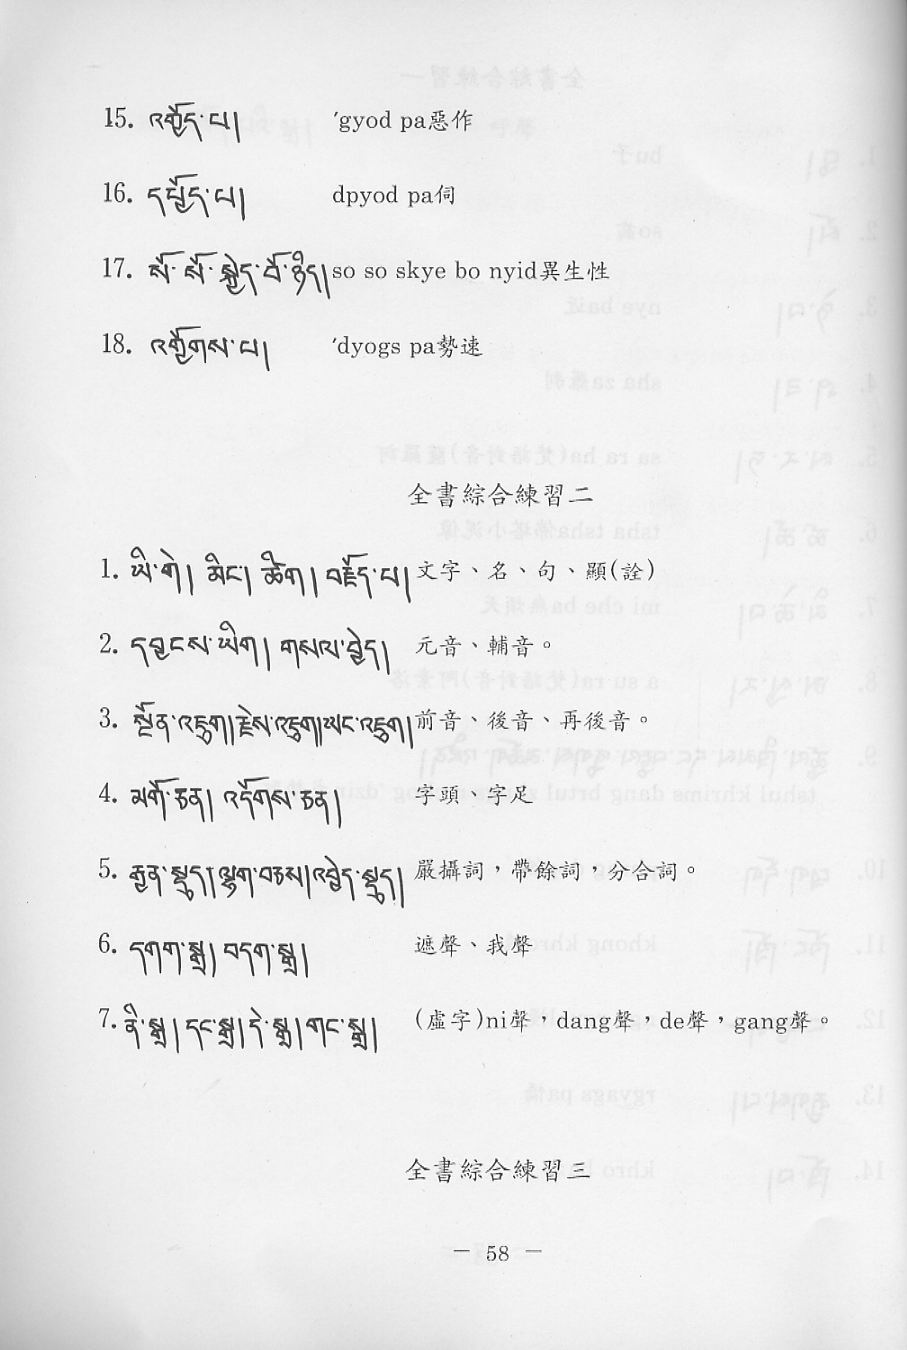 15. འགྱོད་པ། ′gyod pa惡作
16. དཔྱོད་པ། dpyod pa伺
17. སོ་སོ་སྐྱེད་བོ་ཉིད། so so skye bo nyid異生性
18. འགྱོགས་པ། ′dyogs pa勢速
全書綜合練習二
1. ཡི་གེ། མིང། ཚིག། བརྗོད་པ། 文字、名、句、顯(詮)
2. དབྱངས་ཡིག། གསལ་བྱེད། 元音、輔音。
3. སྔོན་འཇུག།རྗེས་འཇུག།ཡང་འཇུག། 前音、後音、再後音。
4. མགོ་ཅན། འདོགས་ཅན། 字頭、字足
5. རྒྱན་སྡུད།ལྷག་བཅས།འབྱེད་སྡུད། 嚴攝詞，帶餘詞，分合詞。
6. དགག་སྒྲ། བདག་སྒྲ། 遮聲、我聲
7. ནི་སྒྲ། དང་སྒྲ། དེ་སྒྲ། གང་སྒྲ། (虛字)ni聲，dang聲，de聲，gang聲。
全書綜合練習三
— 58 —